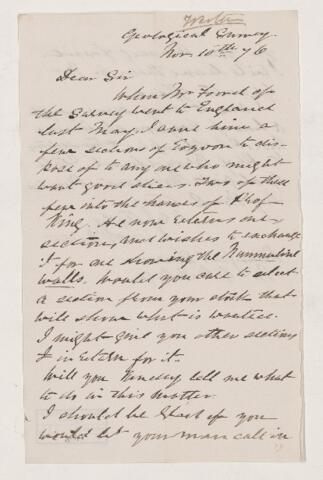 Geological Survey
Nov. 10th 76
Dear Sir
When Mr Foord of
the Survey went to England
last May, I gave him a
few sections of Eozoon to dis-
pose of to any one who might
want good slices. Two of these
fell into the hands of Prof
King. He now returns one
section, and wishes to exchange
it for one showing the Nummuline
walls. Would you care to select
a section from your stock that
will show what is wanted.
I might give you other sections
in return for it.
Will you kindly tell me what
to do in this matter.
I should be glad if you
would let your man call in